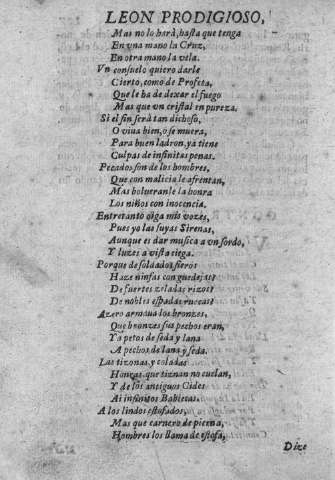 LEON PRODIGIOSO,
Mas no lo harà, hasta que tenga
En vna mano la Cruz,
En otra mano la vela.
Vn consuelo quiero darle
Cierto, como de Profeta,
Que le ha de dexar el fuego
Mas que vn cristal en pureza.
Si el fin serà tan dichoso,
O viua bien, o se muera,
Para buen ladron, ya tiene
Culpas de infinitas penas.
Pecados son de los hombres,
Que con malicia le afrentan,
Mas bolueranle la honra
Los niños con inocencia.
Entretanto oiga mis vozes,
Pues yo las suyas Sirenas,
Aunque es dar musica a vn sordo,
Y luzes a vista ciega.
Porque de soldados fieros
Haze ninfas con guedejas?
De fuertes zeladas rizos?
De nobles espadas ruecas?
Azero armaua los bronzes,
Que bronzes sus pechos eran,
Ya petos de seda y lana
A pechos de lana y seda.
Las tizonas, y coladas
Honras, que tiznan no cuelan,
Y de los antiguos Cides
Ai infinitos Babiecas.
A los lindos estofados,
Mas que carnero de pierna,
Hombres los llama de estofa,
Dize